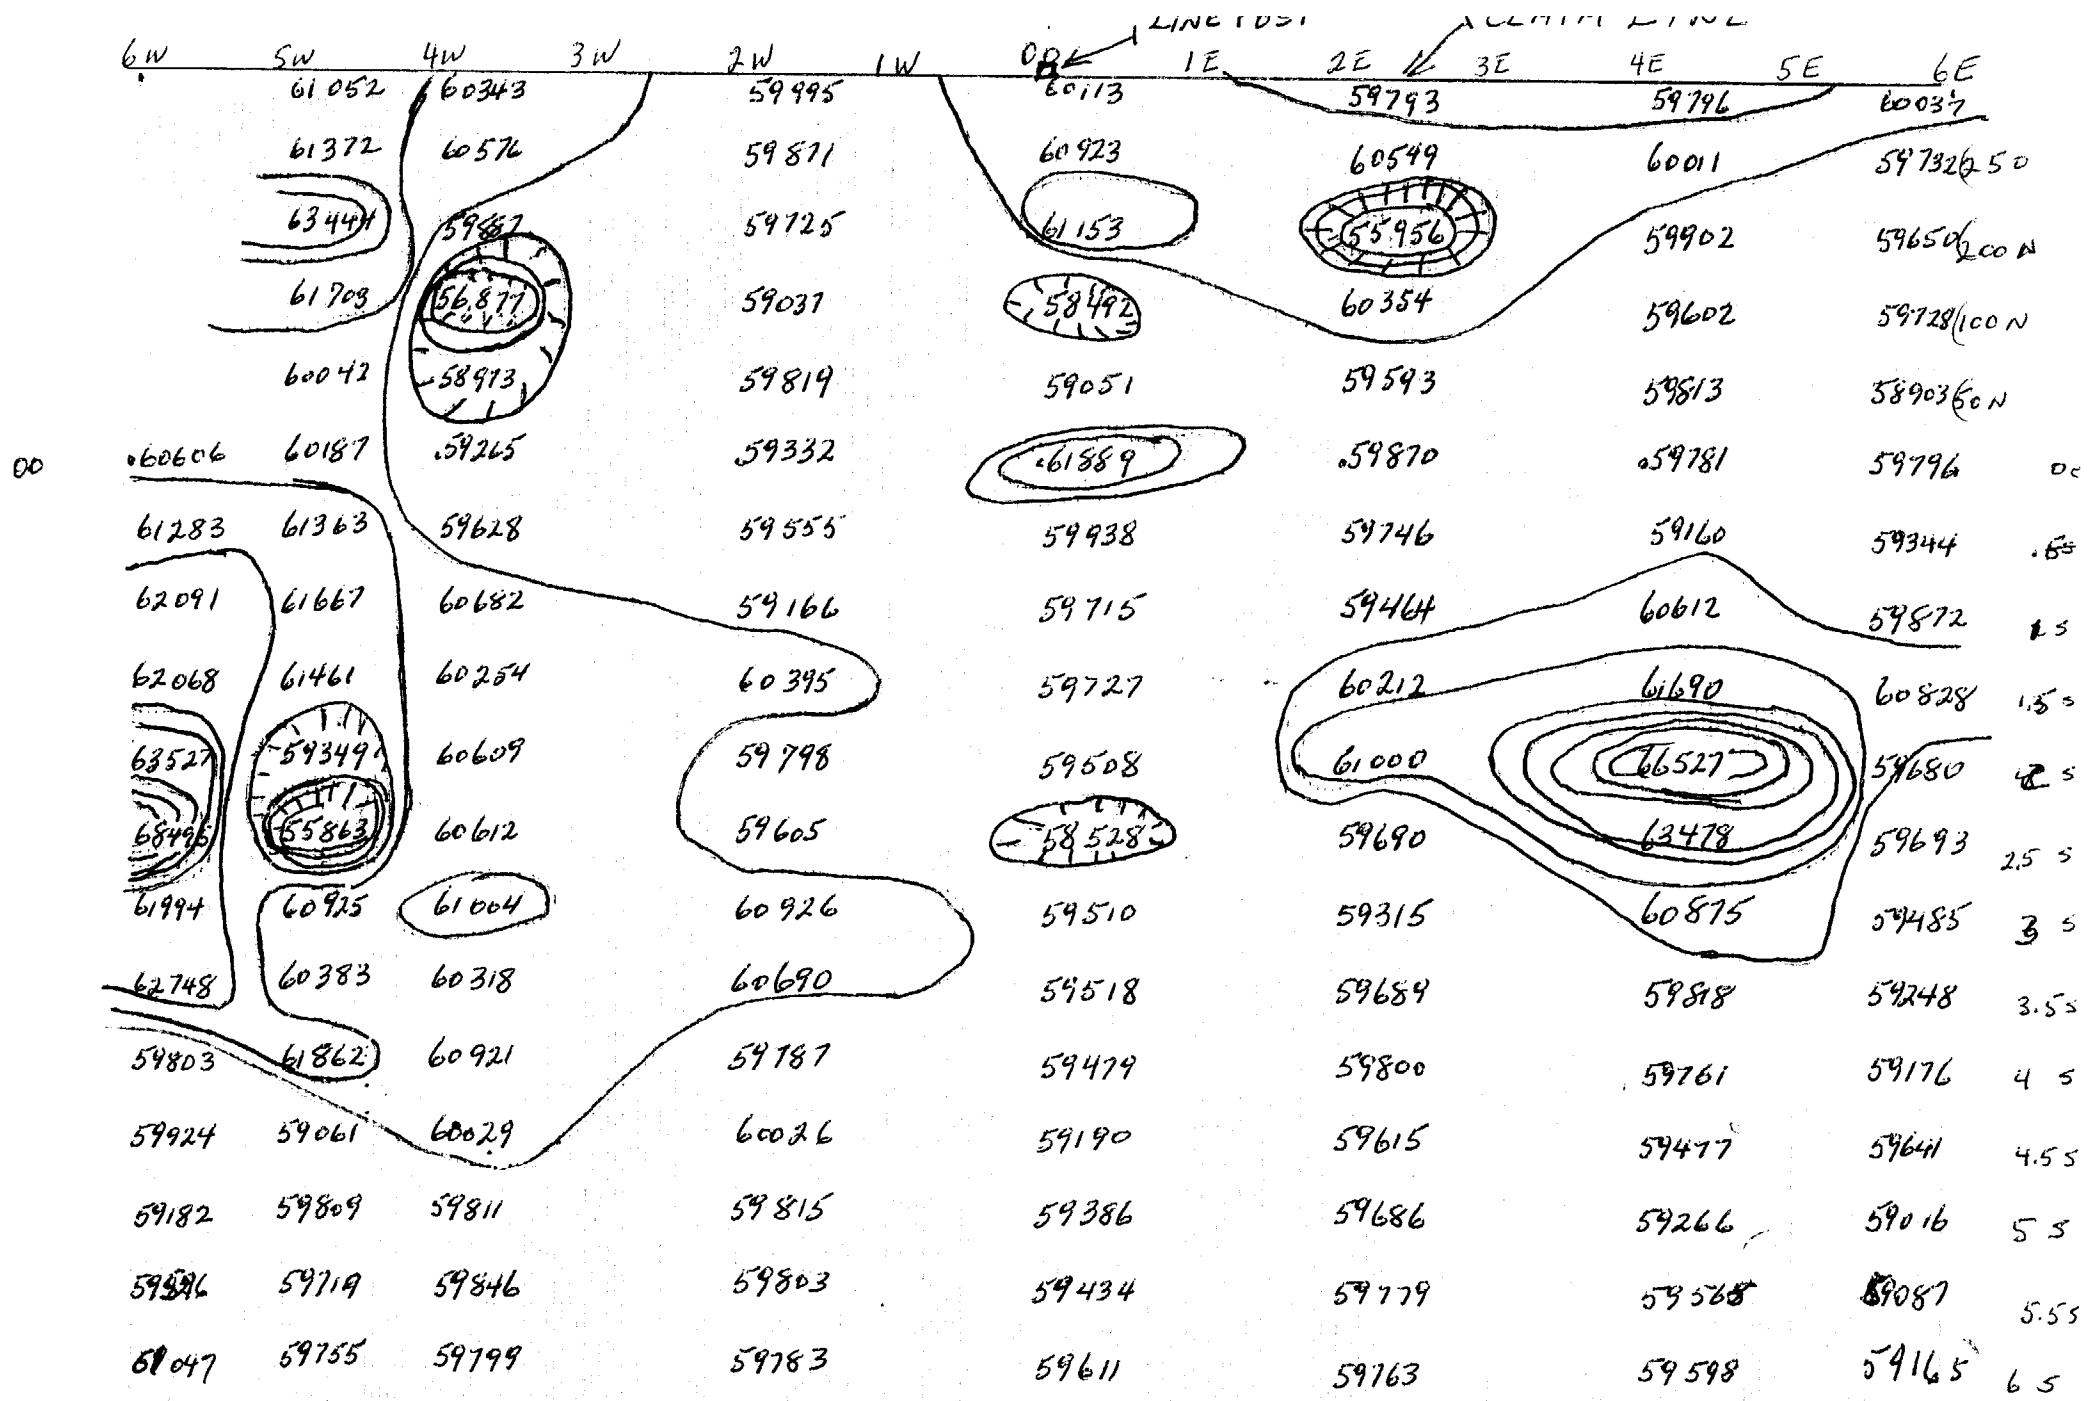 6W 5W 4W 3W 2W 1W 00 1E 2E 3E 4E 5E 6E
61052 60343 59995 60113 59793 59796 60037
61372 60576 59871 60923 60549 60011 59732 (250
63444 59887 59725 61153 55956 59902 59650 (200 N
61703 56877 59037 58492 60354 59602 59728 (100 N
60042 58973 59819 59051 59593 59813 58903 (50 N
00 60606 60187 59265 59332 61889 59870 59781 59796
61283 61363 59628 59555 59938 59746 59160 59344
62091 61667 60682 59166 59715 59464 60612 59872 1 S
62068 61461 60254 60395 59727 60212 61690 60828 1.5 S
63527 59349 60609 59798 59508 61000 66527 59680 2 S
68495 55863 60612 59605 58528 59690 63478 59693 2.5 S
61994 60925 61004 60926 59510 59315 60875 59485 3 S
62748 60383 60318 60690 59518 59689 59818 59248 3.5 S
59803 61862 60921 59787 59479 59800 59761 59176 4 S
59924 59061 60029 60026 59190 59615 59477 59641 4.5 S
59182 59809 59811 59815 59386 59686 59266 59016 5 S
59719 59846 59803 59434 59779 59568 59087 5.5 S
59755 59799 59783 59611 59763 59598 59165 6 S